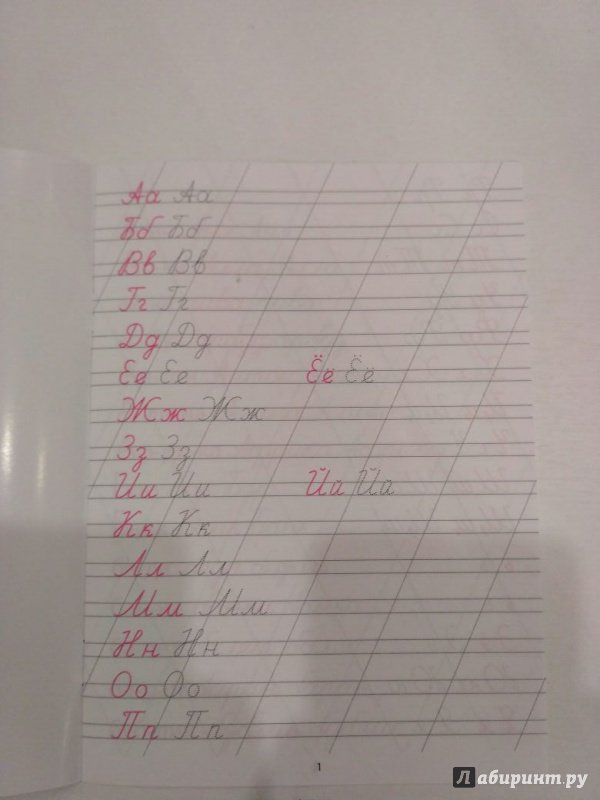 Аа Аа
Бб Бб
Вв Вв
Гг Гг
Дд Дд
Ее Ее Ёё Ёё
Жж Жж
Зз Зз
Ии Ии Йй Йй
Кк Кк
Лл Лл
Мм Мм
Нн Нн
Оо Оо
Пп Пп
1
Лабиринт.ру